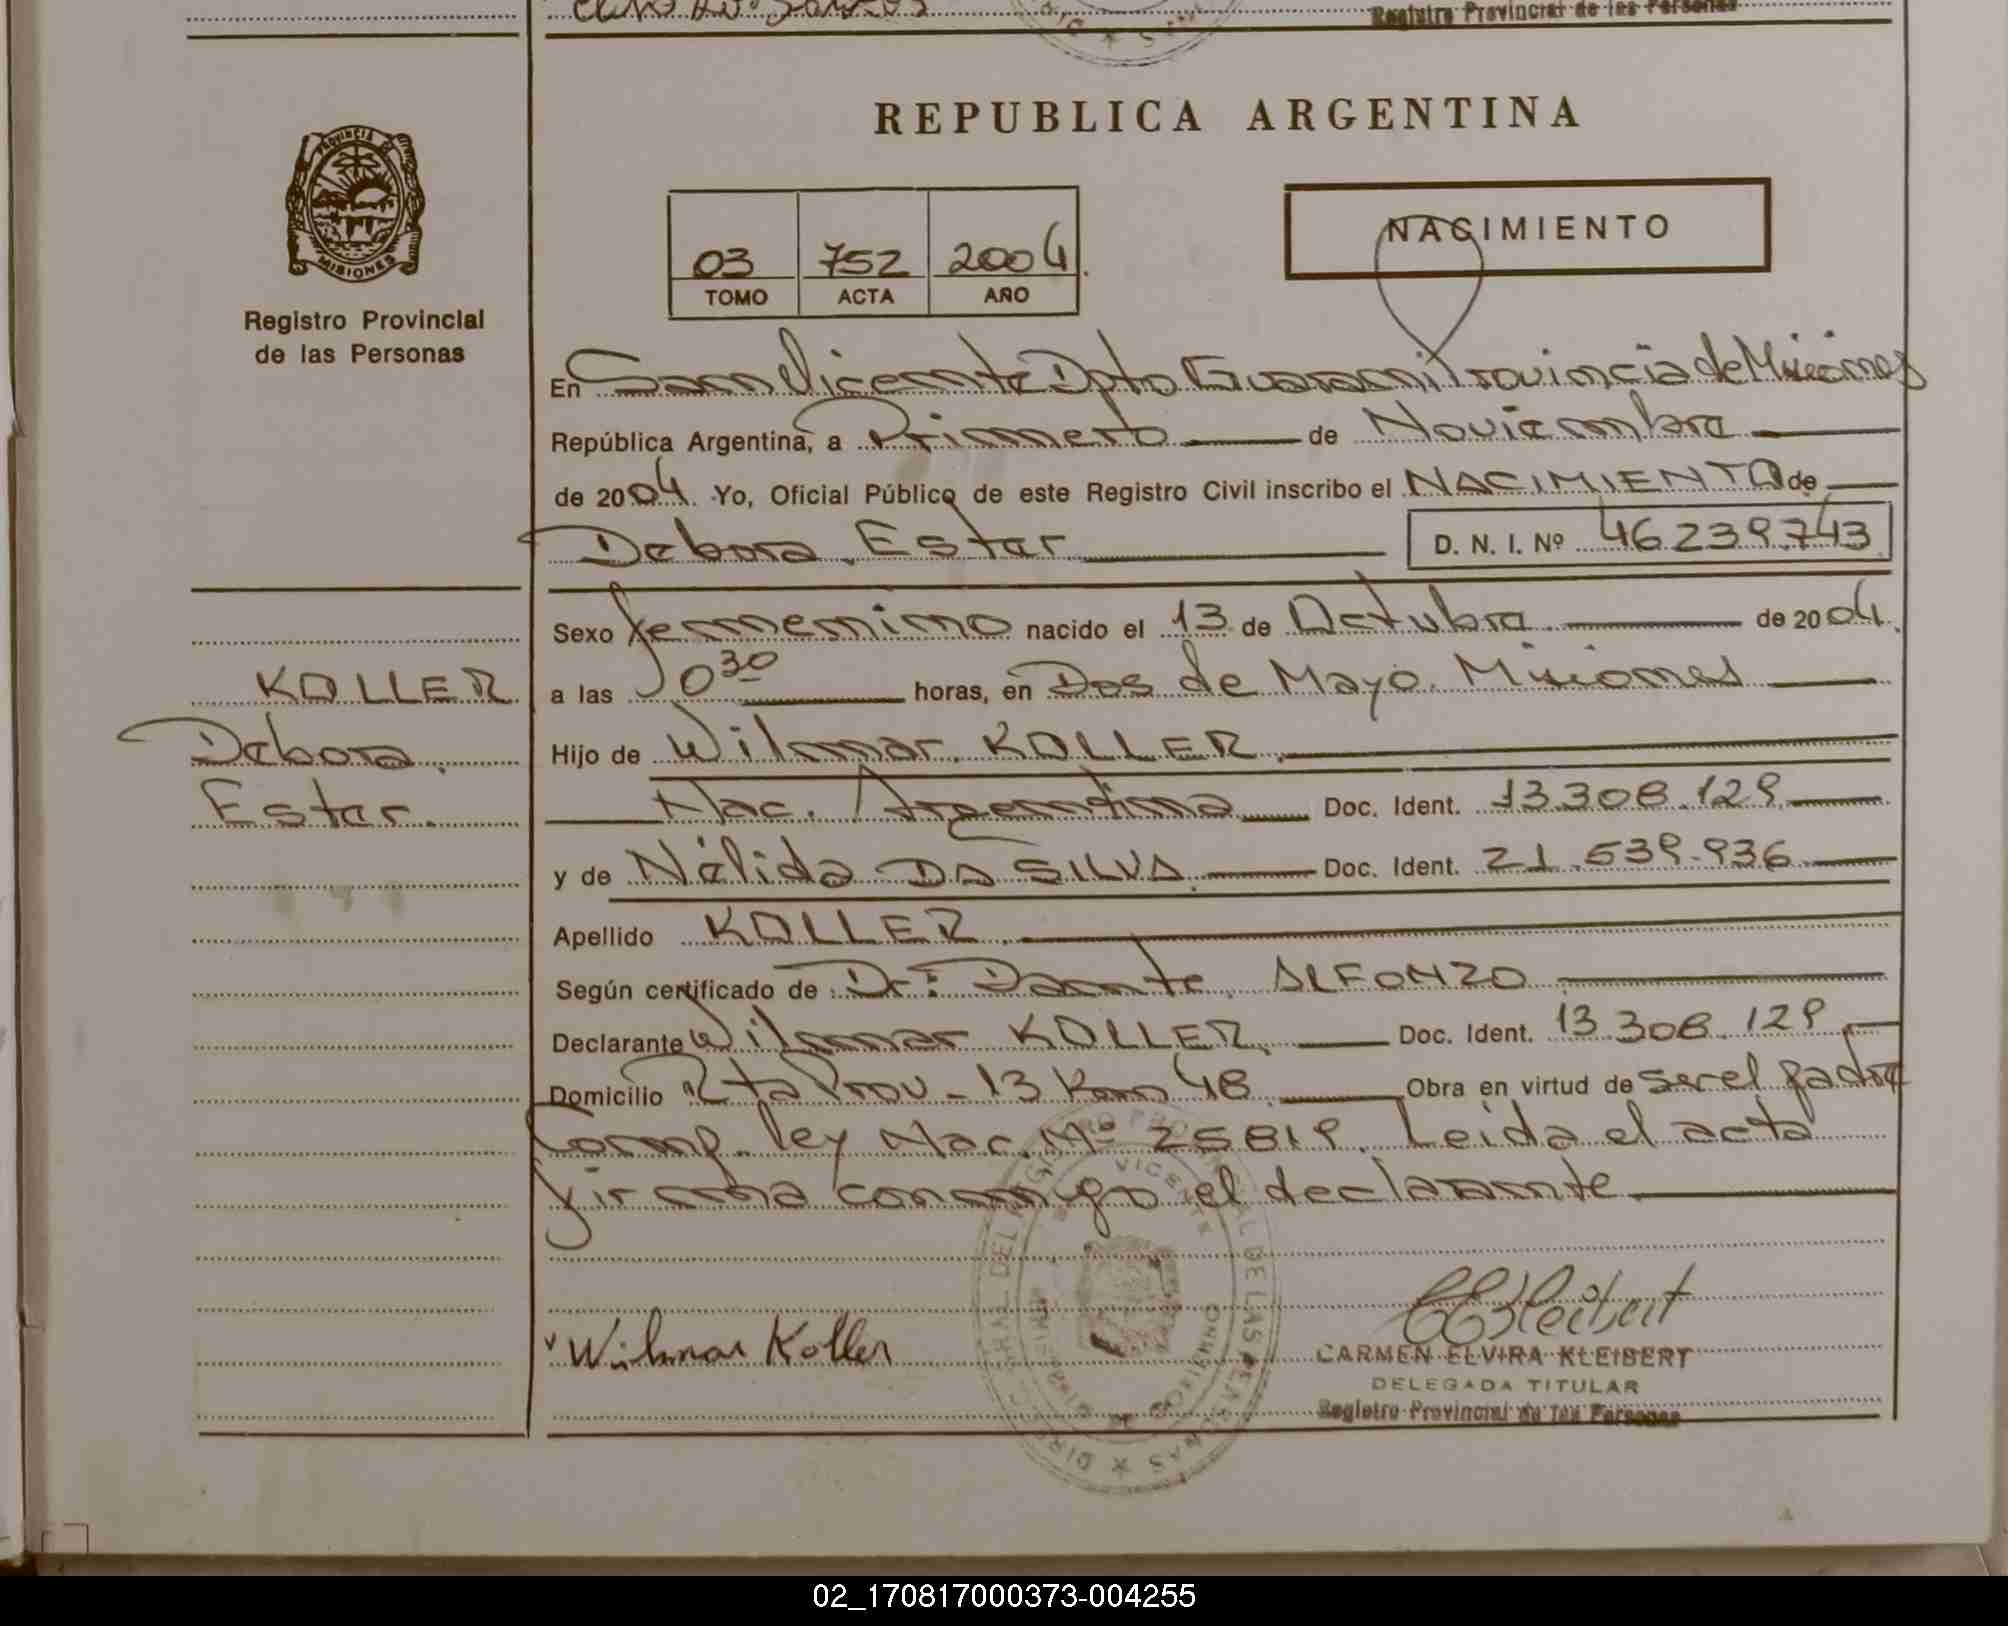 Registro Provincial de las Personas
REPUBLICA ARGENTINA
PROVINCIA DE
MISIONES
Registro Provincial
de las Personas
03 752 2004
TOMO ACTA AÑO
NACIMIENTO
En San Vicente Dpto Guarani Provincia de Misiones
República Argentina, a Primero de Noviembre
de 2004. Yo, Oficial Público de este Registro Civil inscribo el NACIMIENTO de
Debora Ester D. N. I. Nº 46.239.743
Sexo femenino nacido el 13 de Octubre de 2004.
KOLLER
a las 0 30 horas, en Dos de Mayo. Misiones
Debora
Hijo de Wilmar KOLLER
Ester.
Nac. Argentina Doc. Ident. 13.308.129
y de Nélida DA SILVA Doc. Ident. 21.539.936
Apellido KOLLER
Según certificado de Dr: Dante ALFONZO
Declarante Wilmar KOLLER Doc. Ident. 13.308.129
Domicilio Rta Prov - 13 Km 48 Obra en virtud de ser el padre
Comp. ley Nac. Nº 25819. Leida el acta
firma conmigo el declarante
Wilmar Koller
CARMEN ELVIRA KLEIBERT
DELEGADA TITULAR
Registro Provincial de las Personas
02_170817000373-004255